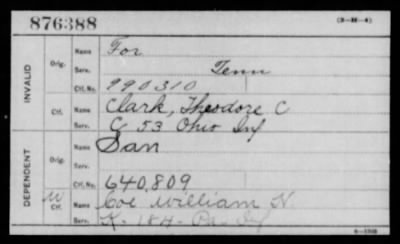 876388
(3-M-4)
INVALID
Orig.
Name For
Serv. Tenn
Ctf. No. 990310
Ctf.
Name Clark, Theodore C
Serv. C 53 Ohio Inf
DEPENDENT
Orig.
Name San
Serv.
Ctf. No. 640,809
W
Ctf.
Name Coe William N
Serv. K. 184 Pa. Inf